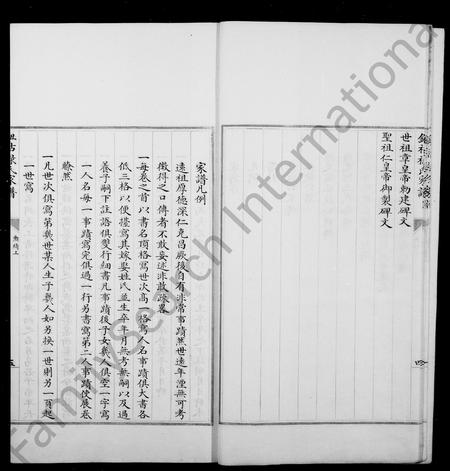 世祖章皇帝勅建碑文
聖祖仁皇帝御製碑文
家譜凡例
遠祖厚德深仁克昌厥後自有非常事蹟然世遠年湮無可考
徵得之口傳者不敢妄述非敢疎畧
一每卷之首以書名頂格寫世次高一格寫人名事蹟俱大書各
低三格以便擡寫其嫁娶姓氏並生卒年月無考無嗣以及過
養子嗣下註語俱雙行細書凡事蹟後子女幾人俱空一字寫
一人名每一事蹟寫完俱過一行另書寫第二人事蹟使展卷
瞭然
一凡世次俱寫第幾世某人生子幾人如另換一世則另一頁起
一世寫
卷端上
五
四
FamilySearch International